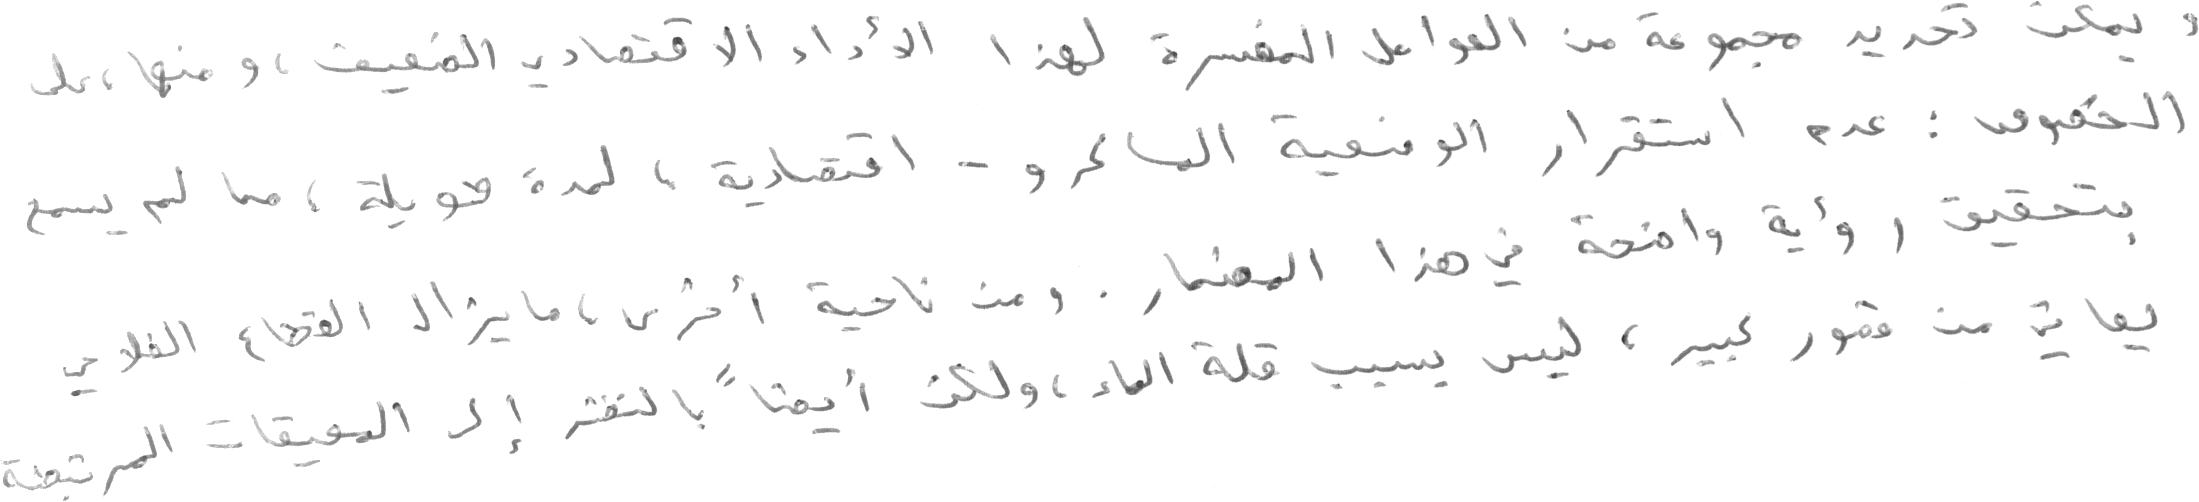 و يمكن تحديد مجموعة من العوامل المفسرة لهذا الأداء الاقتصادي الضعيف ، و منها ، على
الخصوص : عدم استقرار الوضعية الماكرو - اقتصادية ، لمدة طويلة ، مما لم يسمح
بتحقيق رؤية واضحة في هذا المضمار . و من ناحية أخرى ، ما يزال القطاع الفلاحي
يعاني من قصور كبير ، ليس بسبب قلة الماء ، ولكن أيضاً بالنظر إلى المعيقات المرتبطة